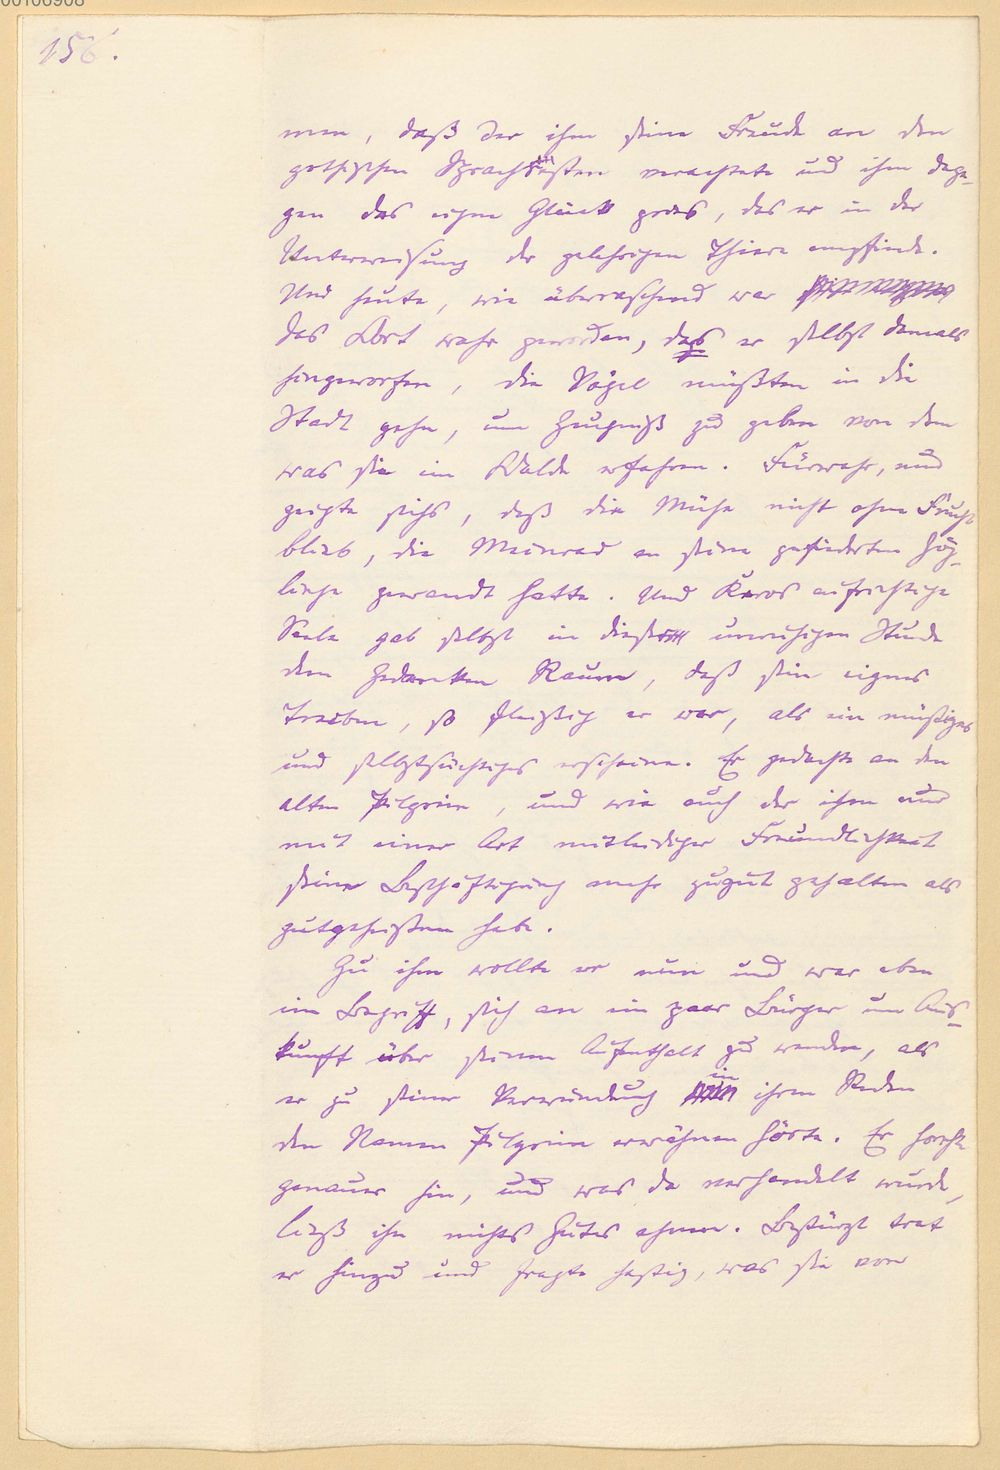 00106908
156.
men, daß der ihm seine Freude an den
gothischen Sprachresten verachtete und ihm dage-
gen das eigne Glück pries, das er in der
Unterweisung der gelehrigen Thiere empfinde.
Und heute, wie überraschend war
das Wort wahr geworden, das er selbst damals
hingeworfen, die Vögel müßten in die
Stadt gehn, um Zeugniß zu geben von dem
was sie im Walde erfahren. Fürwahr, nun
zeigte sichs, daß die Mühe nicht ohne Frucht
blieb, die Meinrad an seine gefiederten Zög-
linge gewandt hatte. Und aufrichtige
Seele gab selbst in dieser unruhigen Stunde
dem Gedanken Raum, daß sein eignes
Treiben, so fleißig er war, als ein müßiges
und selbstsüchtiges erscheine. Er gedachte an den
alten Pilgrim, und wie auch der ihm nur
mit einer Art mitleidiger Freundlichkeit
seine Beschäftigung mehr zugut gehalten als
gutgeheißen habe.
Zu ihm wollte er nun und war eben
im Begriff, sich an ein paar Bürger um Aus-
kunft über seinen Aufenthalt zu wenden, als
er zu seiner Verwunderung in ihren Reden
den Namen Pilgrim erwähnen hörte. Er horchte
genauer hin, und was da verhandelt wurde,
ließ ihn nichts Gutes ahnen. Bestürzt trat
er hinzu und fragte hastig, was sie von